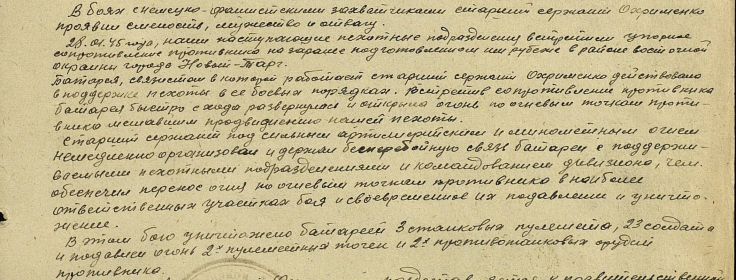 В боях с немецко-фашистскими захватчиками старший сержант Охрименко
проявил смелость, мужество и отвагу.
28.01.45 года, наши наступающие пехотные подразделения, встретили упорное
сопротивление противника на заранее подготовленном им рубеже в районе восточной
окраины города Новый-Тарг.
Батарея, связистом в которой работает старший сержант Охрименко действовала
в поддержке пехоты в ее боевых порядках. Встретив сопротивление противника
батарея быстро с хода развернулась и открыла огонь по огневым точкам проти-
вника мешавшим продвижению нашей пехоты.
Старший сержант под сильным артиллерийским и минометным огнем
немедленно организовал и держал бесперебойную связь батареи с поддержи-
ваемыми пехотными подразделениями и командованием дивизиона, чем
обеспечил перенос огня по огневым точкам противника в наиболее
ответственных участках боя и своевременное их подавление и уничто-
жение.
В этом бою уничтожено батареей 3 станковых пулемета, 23 солдата
и подавлен огонь 2х пулеметных точек и 2х противотанковых орудий
противника.